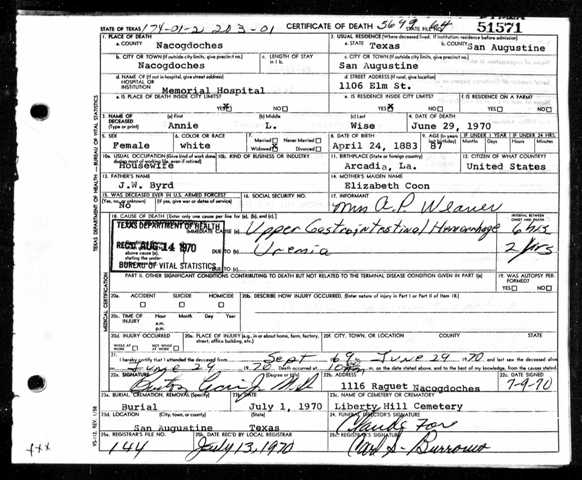 STATE OF TEXAS 174-01-2 203-01 CERTIFICATE OF DEATH 5699 64 STATE FILE NO. 51571
1. PLACE OF DEATH 2. USUAL RESIDENCE (Where deceased lived. If institution: residence before admission)
a. COUNTY Nacogdoches a. STATE Texas b. COUNTY San Augustine
b. CITY OR TOWN (If outside city limits, give precinct no.) c. LENGTH OF STAY in 1 b. c. CITY OR TOWN (If outside city limits, give precinct no.)
Nacogdoches San Augustine
d. NAME OF (If not in hospital, give street address) HOSPITAL OR INSTITUTION Memorial Hospital d. STREET ADDRESS (If rural, give location) 1106 Elm St.
e. IS PLACE OF DEATH INSIDE CITY LIMITS? YES NO e. IS RESIDENCE INSIDE CITY LIMITS? YES NO f. IS RESIDENCE ON A FARM? YES NO
3. NAME OF DECEASED (Type or print) (a) First (b) Middle (c) Last 4. DATE OF DEATH
Annie L. Wise June 29, 1970
5. SEX 6. COLOR OR RACE 7. Married Never Married Widowed Divorced 8. DATE OF BIRTH 9. AGE IF UNDER 1 YEAR IF UNDER 24 HRS.
Female white April 24, 1883 87 Months Days Hours Min.
10a. USUAL OCCUPATION (Give kind of work done 10b. KIND OF BUSINESS OR INDUSTRY 11. BIRTHPLACE (State or foreign country) 12. CITIZEN OF WHAT COUNTRY?
Housewife Arcadia, La. United States
13. FATHER'S NAME 14. MOTHER'S MAIDEN NAME
J.W. Byrd Elizabeth Coon
15. WAS DECEASED EVER IN U.S. ARMED FORCES? 16. SOCIAL SECURITY NO. 17. INFORMANT
(Yes, no, or unknown) (If yes, give war or dates of service)
No Mrs A.P. Weaver
18. CAUSE OF DEATH [Enter only one cause per line for (a), (b), and (c).] INTERVAL BETWEEN ONSET AND DEATH
TEXAS DEPARTMENT OF HEALTH IMMEDIATE CAUSE (a) Upper Gastrointestinal Hemorrhage 6 hrs
REC'D AUG 14 1970 above cause (a) stating the under- DUE TO (b) Uremia 2 yrs
BUREAU OF VITAL STATISTICS DUE TO (c)
PART II. OTHER SIGNIFICANT CONDITIONS CONTRIBUTING TO DEATH BUT NOT RELATED TO THE TERMINAL DISEASE CONDITION GIVEN IN PART I(a) 19. WAS AUTOPSY PERFORMED? YES NO
20a. ACCIDENT SUICIDE HOMICIDE 20b. DESCRIBE HOW INJURY OCCURRED. (Enter nature of injury in Part I or Part II of item 18.)
20c. TIME OF INJURY Hour Month Day Year a.m. p.m.
20d. INJURY OCCURRED WHILE AT WORK NOT WHILE AT WORK 20e. PLACE OF INJURY (e.g., in or about home, farm, factory, street, office building, etc.) 20f. CITY, TOWN, OR LOCATION COUNTY STATE
21. I hereby certify that I attended the deceased from Sept 69 June 29 1970 and last saw the deceased alive
June 29 1970 Death occurred at m. on the date stated above, and to the best of my knowledge, from the causes stated.
22a. SIGNATURE (Degree or title) M.D. 22b. ADDRESS 1116 Raguet Nacogdoches 22c. DATE SIGNED 7-9-70
23a. BURIAL, CREMATION, REMOVAL (Specify) 23b. DATE 23c. NAME OF CEMETERY OR CREMATORY
Burial July 1, 1970 Liberty Hill Cemetery
23d. LOCATION (City, town, or county) (State) 24. FUNERAL DIRECTOR'S SIGNATURE
San Augustine Texas Claude Fore
25a. REGISTRAR'S FILE NO. 25b. DATE REC'D BY LOCAL REGISTRAR 25c. REGISTRAR'S SIGNATURE
144 July 13, 1970 Carl S. Burrows
TEXAS DEPARTMENT OF HEALTH — BUREAU OF VITAL STATISTICS
MEDICAL CERTIFICATION
VS-112, REV. 1/58